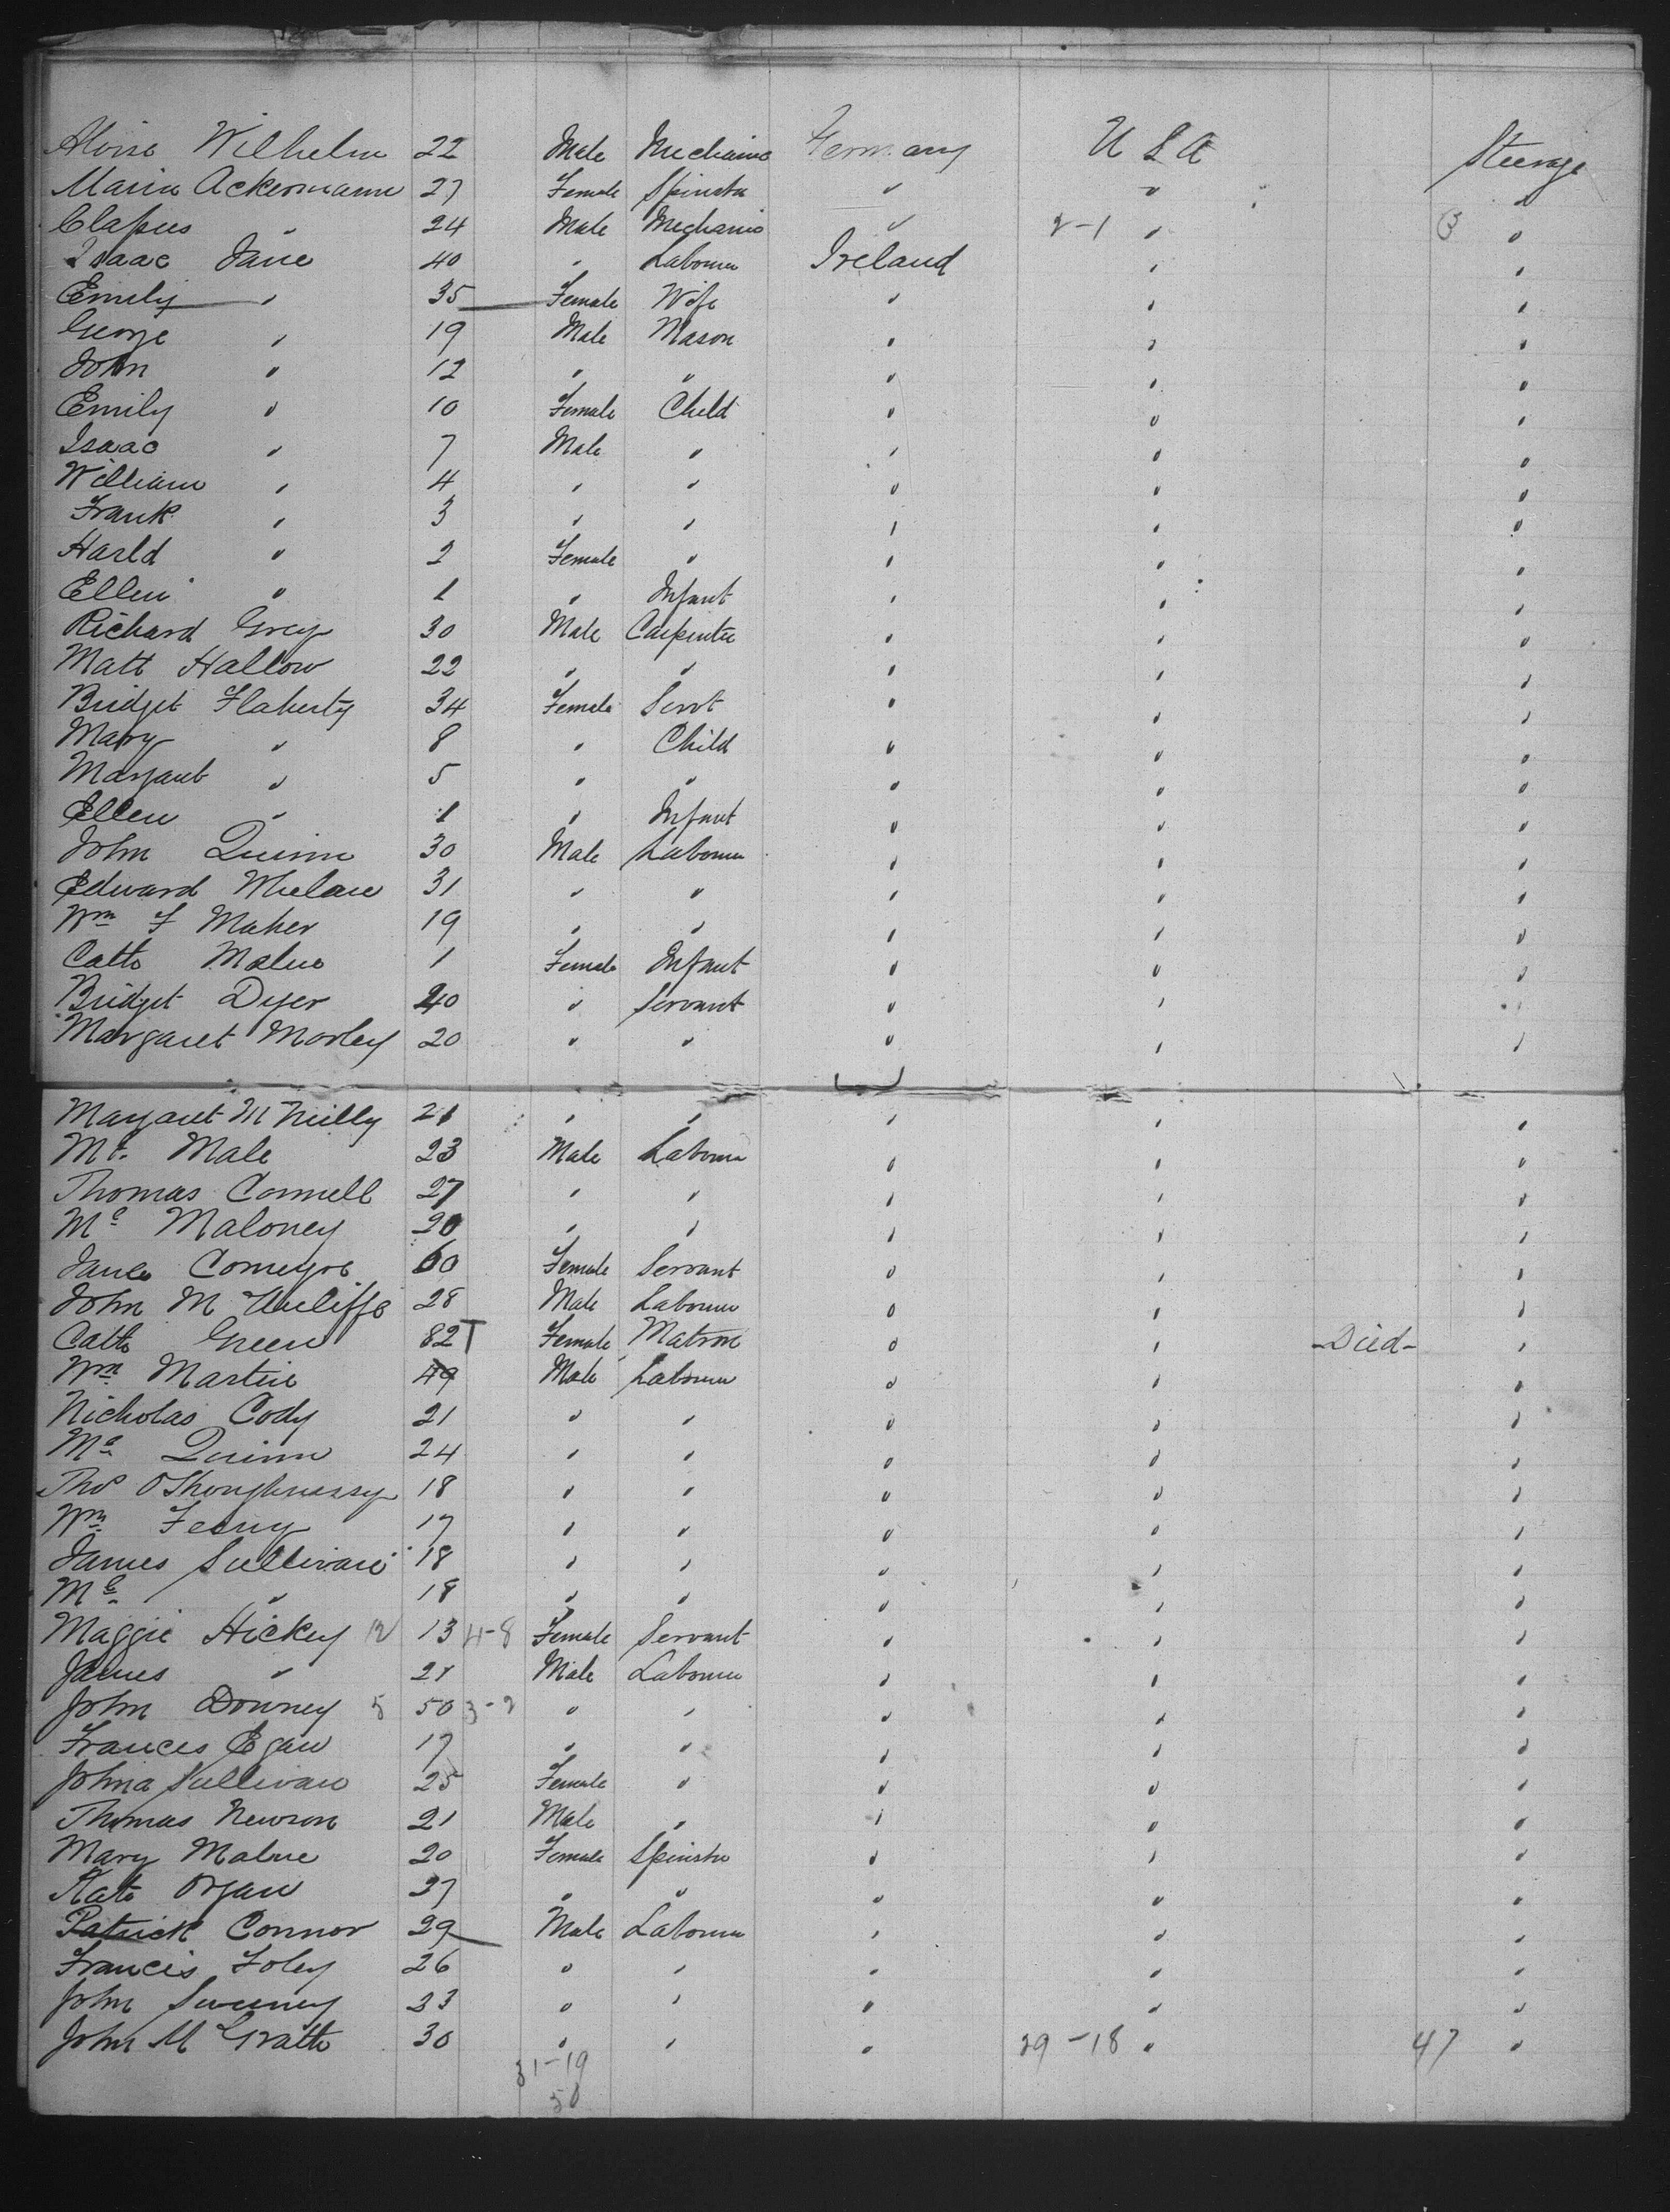 Wilhelm 22 Male Mechanic Germany U S A Steerage
Maria Ackermann 27 Female Spinster " " "
" 24 Male Mechanic " 2-1 " 3 "
Isaac Jane 40 " Labourer Ireland " "
Emily " 35 Female Wife " " "
George " 19 Male Mason " " "
John " 12 " " " " "
Emily " 10 Female Child " " "
Isaac " 7 Male " " " "
William " 4 " " " " "
Frank " 3 " " " " "
Harld " 2 Female " " " "
Ellen " 1 " Infant " " "
Richard Grey 30 Male Carpenter " " "
Matt Hallow 22 " " " " "
Bridget Flaherty 34 Female Servt " " "
Mary " 8 " Child " " "
Margaret " 5 " " " " "
Ellen " 1 " Infant " " "
John Quinn 30 Male Labourer " " "
Edward Whelan 31 " " " " "
Wm F Maher 19 " " " " "
Cath 1 Female Infant " " "
Bridget Dyer 40 " Servant " " "
Margaret Morley 20 " " " " "
Margaret 21 " " " " "
Male 23 Male Labourer " " "
Thomas Connell 27 " " " " "
Mc Maloney 20 " " " " "
60 Female Servant " " "
John M Auliffe 28 Male Labourer " " "
Cath Green 82 T Female Matron " " -Died- "
Wm Martin 49 Male Labourer " " "
Nicholas Cody 21 " " " " "
Quinn 24 " " " " "
Thos OShoughnessy 18 " " " " "
Wm 17 " " " " "
James Sullivan 18 " " " " "
" 18 " " " " "
Maggie Hickey 12 13 4-8 Female Servant " " "
James " 21 Male Labourer " " "
John Downey 5 50 3-2 " " " " "
Frances Egan 17 " " " " "
Johna Sullivan 25 Female " " " "
Thomas Newson 21 Male " " " "
Mary Malne 20 Female Spinster " " "
Kate 27 " " " " "
Patrick Connor 29 Male Labourer " " "
Francis Foley 26 " " " " "
John Sweeney 23 " " " " "
John Mc Grath 30 " " " 29-18 " 47 "
31-19
50